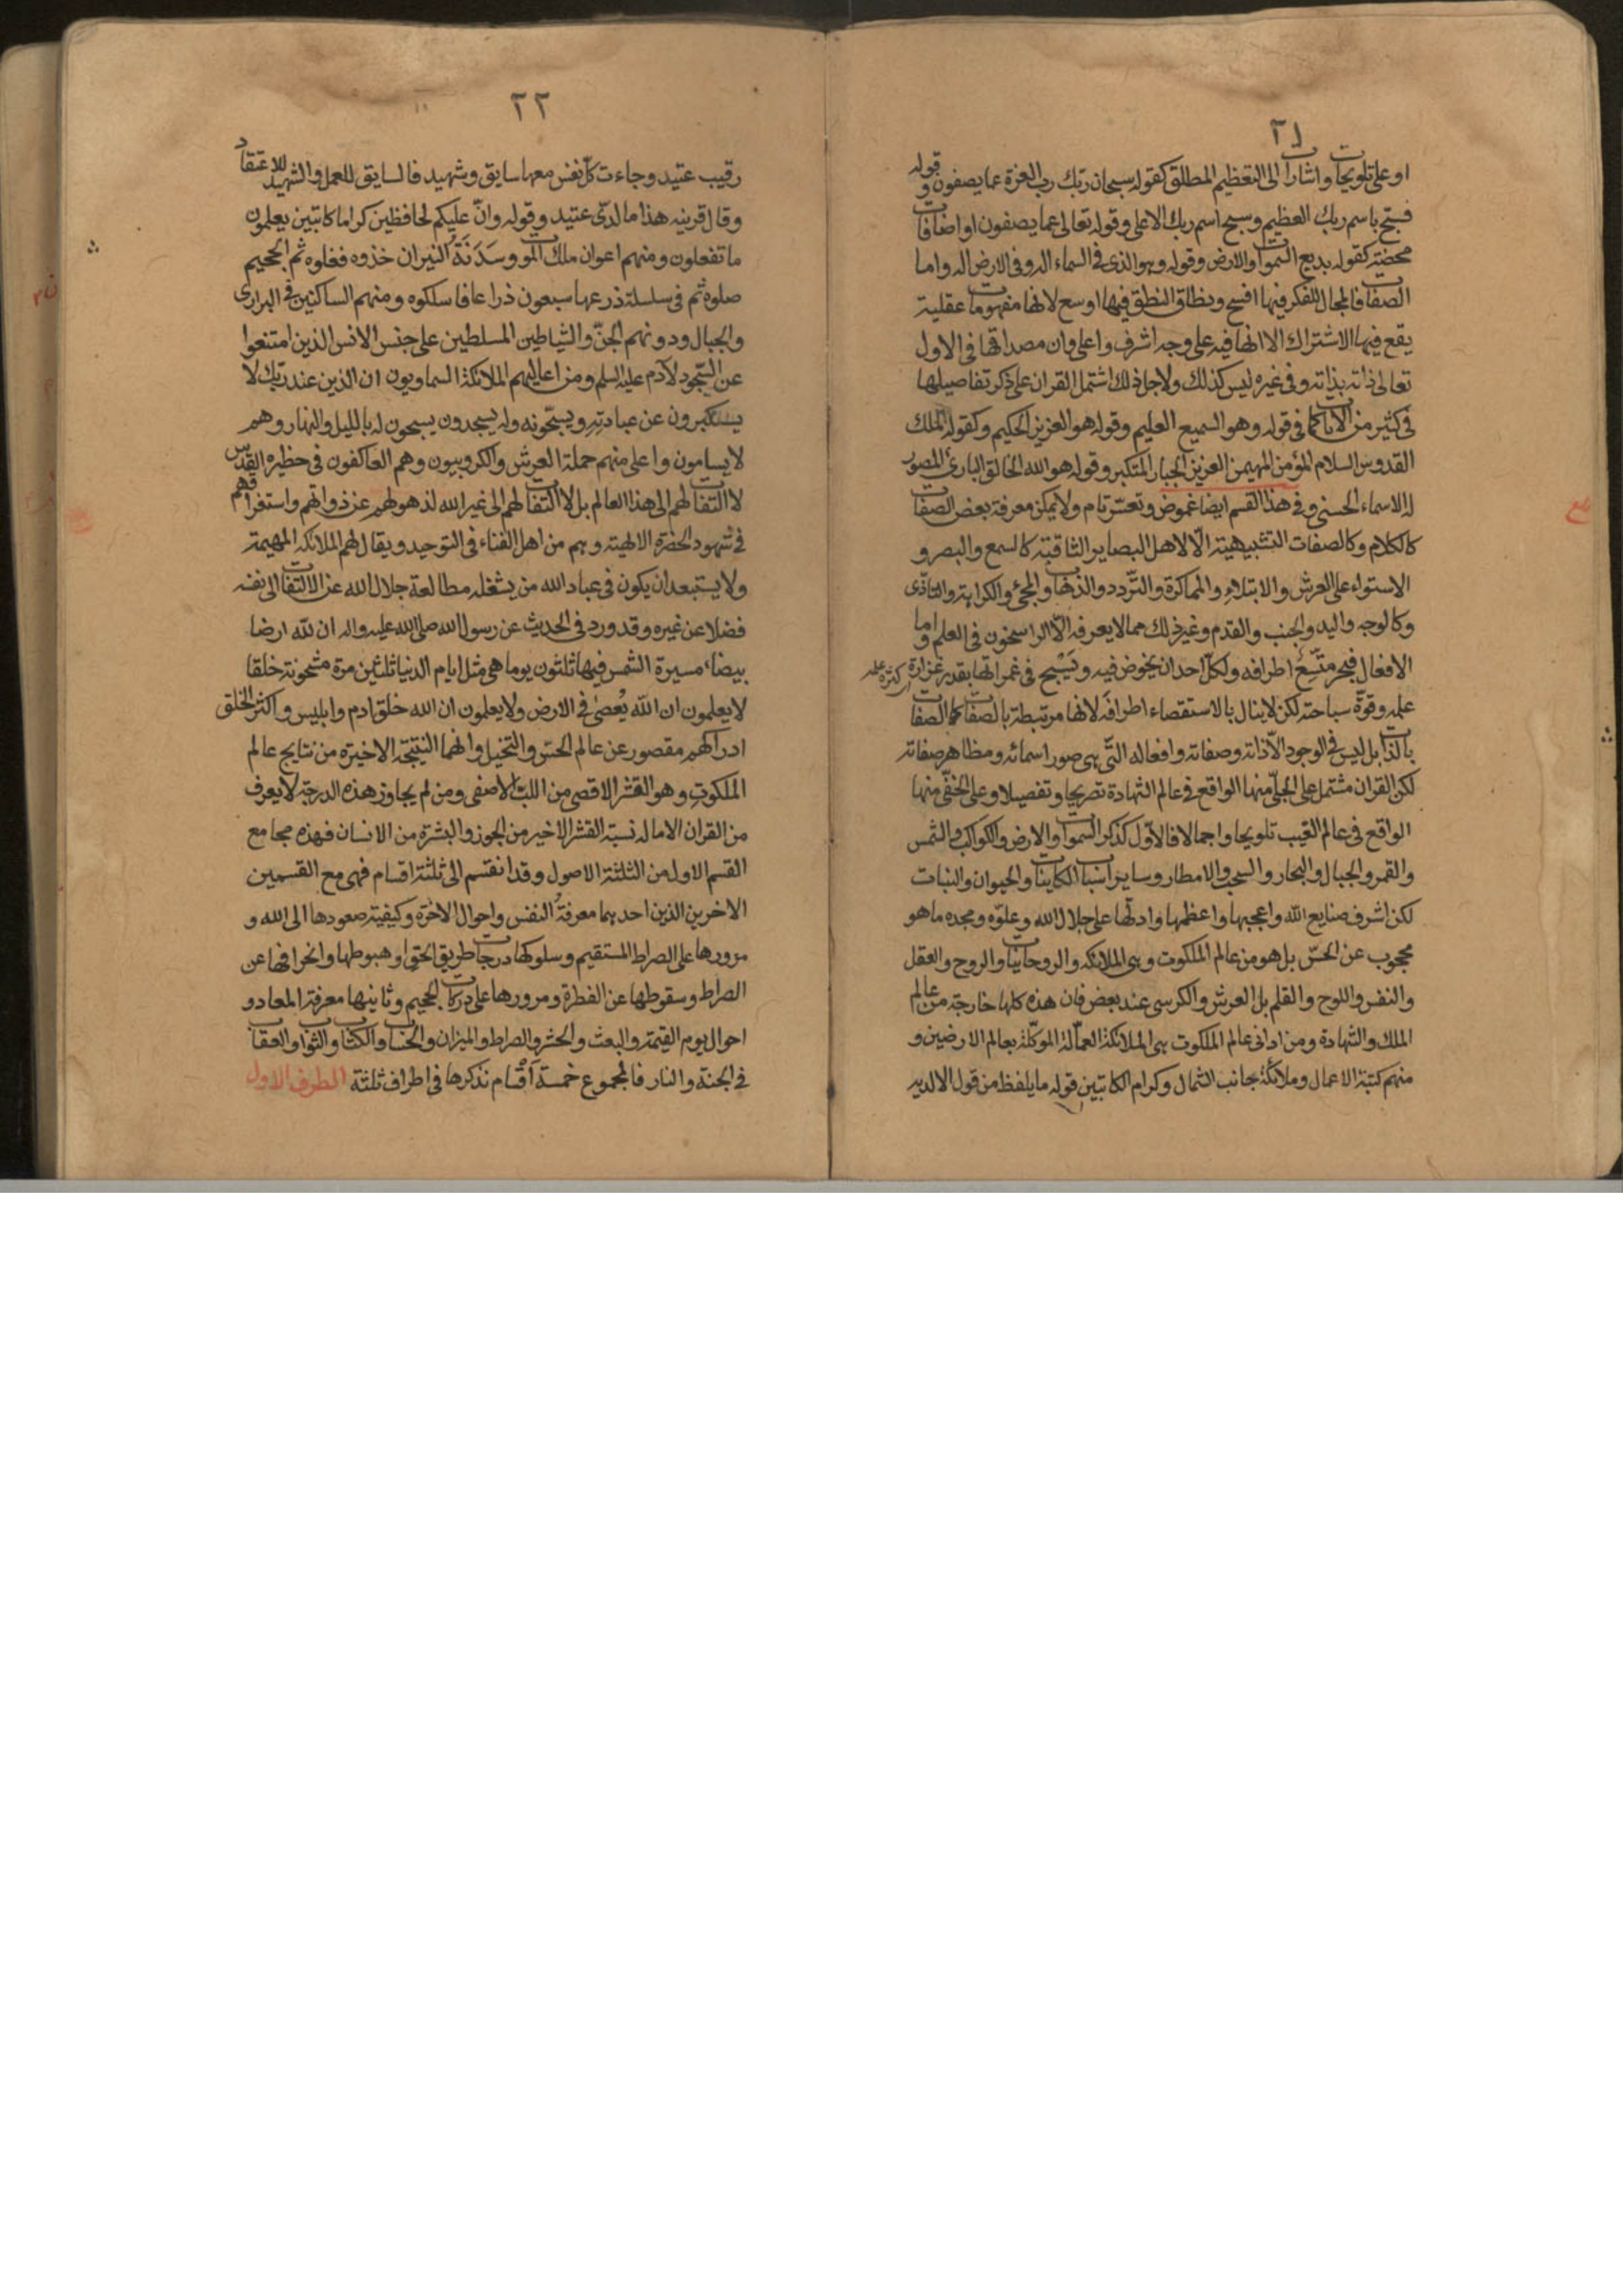 ٢١
او على تلويحات واشارات الى التعظيم المطلق كقوله سبحان ربك رب العزة عما يصفون وقوله
فسبح باسم ربك العظيم وسبح اسم ربك الاعلى وقوله تعالى عما يصفون او اضافات
محضة كقوله بديع السموات والارض وقوله وهو الذى فى السماء اله وفى الارض اله واما
الصفات فالمجال للفكر فيها افسح ونطاق النطق فيها اوسع لانها مفهومات عقلية
يقع فيها الاشتراك الا انها فيه على وجه اشرف واعلى وان مصداقها فى الاول
تعالى ذاته بذاته وفى غيره ليس كذلك ولاجل ذلك اشتمل القران على ذكر تفاصيلها
فى كثير من الايات كما فى قوله وهو السميع العليم وقوله هو العزيز الحكيم وكقوله الملك
القدوس السلام المؤمن المهيمن العزيز الجبار المتكبر وقوله هو الله الخالق البارئ المصور
له الاسماء الحسنى وفى هذا القسم ايضا غموض وتعسّر تام ولا يمكن معرفة بعض الصفات
كالكلام وكالصفات التشبيهية الّا لاهل البصاير الثاقبة كالسمع والبصر و
الاستواء على العرش والابتلاء والمماكرة والتّردد والذهاب والمجئ والكراهة والتاذّى
وكالوجه واليد والجنب والقدم وغير ذلك مما لا يعرفه الّا الراسخون فى العلم واما
الافعال فبحر متّسع اطرافه ولكلّ احد ان يخوض فيه ويَسْبح فى غمراتها بقدر غزارة
كثرة علمه
علمه وقوّة سباحته لكن لا ينال بالاستقصاء اطرافه لانها مرتبطة بالصفات كما الصفات
بالذات بل ليس فى الوجود الّا ذاته وصفاته وافعاله التّى هى صور اسمائه ومظاهر صفاته
لكن القران مشتمل على الجلىّ منها الواقع فى عالم الشهادة تصريحا وتفصيلا وعلى الخفّى منها
الواقع فى عالم الغيب تلويحا واجمالا فالاوّل كذكر السموات والارض والكواكب والشمس
والقمر والجبال والبحار والسحب والامطار وساير اسباب الكاينات والحيوان والنبات
لكن اشرف صنايع الله واعجبها واعظمها وادلّها على جلال الله وعلوّه ومجده ما هو
محجوب عن الحسّ بل هو من عالم الملكوت وهى الملائكه والروحانيات والروح والعقل
والنفس واللوح والقلم بل العرش والكرسى عند بعض فان هذه كلها خارجة من عالم
الملك والشهادة ومن ادانى عالم الملكوت هى الملائكة العمّالة الموكّلة بعالم الارضين و
منهم كتبة الاعمال وملائكة جانب الشمال وكرام الكاتبين قوله ما يلفظ من قول الا لديه
٢٢
رقيب عتيد وجاءت كلّ نفس معها سايق وشهيد فالسايق للعمل والشهيد للاعتقاد
وقال قرينه هذا ما لدىّ عتيد وقوله وانّ عليكم لحافظين كراما كاتبين يعلمون
ما تفعلون ومنهم اعوان ملك الموت وسَدَنَة النيران خذوه فغلوه ثم الجحيم
صلوه ثم فى سلسلة ذرعها سبعون ذراعا فاسلكوه ومنهم الساكنين فى البرارى
والجبال ودونهم الجنّ والشياطين المسلطين على جنس الانس الذين امتنعوا
عن السّجود لآدم عليه السلم ومن اعاليهم الملائكة السماويون ان الذين عند ربّك لا
يستكبرون عن عبادته ويسبّحونه وله يسجدون يسبحون له بالليل والنهار وهم
لا يسامون واعلى منهم حملة العرش والكروبيون وهم العاكفون فى حظيرة القدّس
لا التفات لهم الى هذا العالم بل لا التفات لهم الى غير الله لذهولهم عن ذواتهم واستغراقهم
فى شهود الحضرة الالهية وهم من اهل الفناء فى التوحيد ويقال لهم الملائكه المهيمة
ولا يستبعد ان يكون فى عباد الله من يشغله مطالعة جلال الله عن الالتفات الى نفسه
فضلا عن غيره وقد ورد فى الحديث عن رسول الله صلى الله عليه واله ان لله ارضا
بيضاء مسيرة الشمس فيها ثلثون يوما هى مثل ايام الدنيا ثلثين مرة مشحونة خلقا
لا يعلمون ان الله يُعصى فى الارض ولا يعلمون ان الله خلق ادم وابليس واكثر الخلق
ادراكهم مقصور عن عالم الحسّ والتخيل وانهما النتيجة الاخيرة من نتايج عالم
الملكوت وهو القشر الاقصى من اللب الاصفى ومن لم يجاوز هذه الدرجة لا يعرف
من القران الا ما له نسبة القشر الاخير من الجوز والبشرة من الانسان فهذه مجامع
القسم الاول من الثلثة الاصول وقد انقسم الى ثلثة اقسام فهى مع القسمين
الاخرين الذين احدهما معرفة النفس واحوال الاخرة وكيفية صعودها الى الله و
مرورها على الصراط المستقيم وسلوكها درجات طريق الحق او هبوطها وانحرافها عن
الصراط وسقوطها عن الفطرة ومرورها على دركات الجحيم وثانيها معرفة المعاد و
احوال يوم القيمة والبعث والحشر والصراط والميزان والحساب والكتاب والثواب والعقاب
فى الجنة والنار فالمجموع خمسة اقسام نذكرها فى اطراف ثلثة الطرف الاول